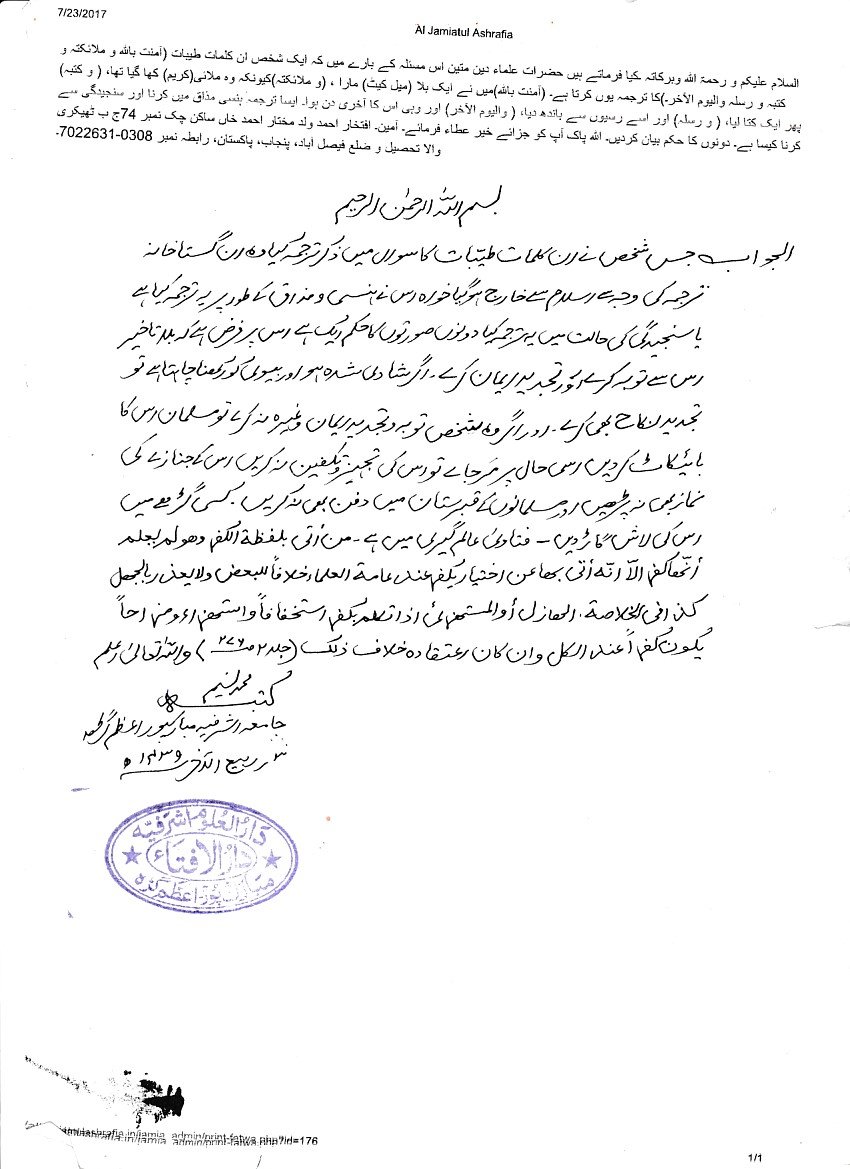 7/23/2017
Al Jamiatul Ashrafia
السلام علیکم و رحمۃ اللہ وبرکاتہ کیا فرماتے ہیں حضرات علماء دین متین اس مسئلہ کے بارے میں کہ ایک شخص ان کلمات طیبات (أمنت باللہ و ملائکتہ و
کتبہ و رسلہ والیوم الآخر۔)کا ترجمہ یوں کرتا ہے۔ (أمنت باللہ)میں نے ایک بلا (میل کیٹ) مارا ، (و ملائکتہ)کیونکہ وہ ملائی(کریم) کھا گیا تھا، ( و کتبہ)
پھر ایک کتا لیا، ( و رسلہ) اور اسے رسیوں سے باندھ دیا، ( والیوم الآخر) اور وہی اس کا آخری دن ہوا۔ ایسا ترجمہ ہنسی مذاق میں کرنا اور سنجیدگی سے
کرنا کیسا ہے۔ دونوں کا حکم بیان کردیں۔ اللہ پاک آپ کو جزائے خیر عطاء فرمائے۔ آمین۔ افتخار احمد ولد مختار احمد خان ساکن چک نمبر 74ج ب ٹھیکری
والا تحصیل و ضلع فیصل آباد، پنجاب، پاکستان، رابطہ نمبر 0308-7022631۔
بسم اللہ الرحمٰن الرحیم
الجواب جس شخص نے ان کلمات طیبات کا سوال میں ذکر ترجمہ کیا وہ ان گستاخانہ
ترجمہ کی وجہ سے اسلام سے خارج ہو گیا خواہ اس نے ہنسی و مذاق کے طور پر یہ ترجمہ کیا ہے
یا سنجیدگی کی حالت میں یہ ترجمہ کیا دونوں صورتوں کا حکم ایک ہے اس پر فرض ہے کہ بلا تاخیر
اس سے توبہ کرے اور تجدید ایمان کرے۔ اگر شادی شدہ ہو اور بیوی کو رکھنا چاہتا ہے تو
تجدید نکاح بھی کرے۔ اور اگر وہ شخص توبہ و تجدید ایمان وغیرہ نہ کرے تو مسلمان اس کا
بائیکاٹ کردیں اسی حال پر مر جائے تو اس کی تجہیز و تکفین نہ کریں اس کے جنازے کی
نماز بھی نہ پڑھیں اور مسلمانوں کے قبرستان میں دفن بھی نہ کریں۔ کسی گڑھے میں
اس کی لاش گاڑ دیں - فتاویٰ عالم گیری میں ہے۔ من أتى بلفظة الكفر وهو لم يعلم
أنها كفر إلا أنه أتى بها عن اختيار يكفر عند عامة العلماء خلافاً للبعض ولا يعذر بالجهل
كذا في الخلاصة، الهازل أو المستهزئ إذا تكلم بكفر استخفافاً واستهزاء ومزاحاً
يكون كفراً عند الكل وان كان اعتقاده خلاف ذلك (جلد ۲ ص ۲۷۶) واللہ تعالیٰ اعلم
محمد نسیم
کتبہ
جامعہ اشرفیہ مبارکپور اعظم گڑھ
ربیع الآخر ۱۴۳۹ھ
دار العلوم اشرفیہ
دار الافتاء
مبارک پور۔ اعظم گڑھ
admin/print-fatwa.php?id=176
1/1